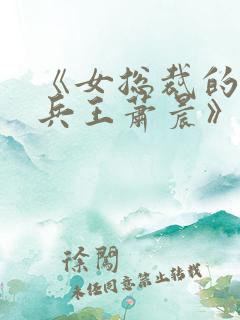 《女总裁的
兵王萧晨》
徐闯
未经同意禁止转载